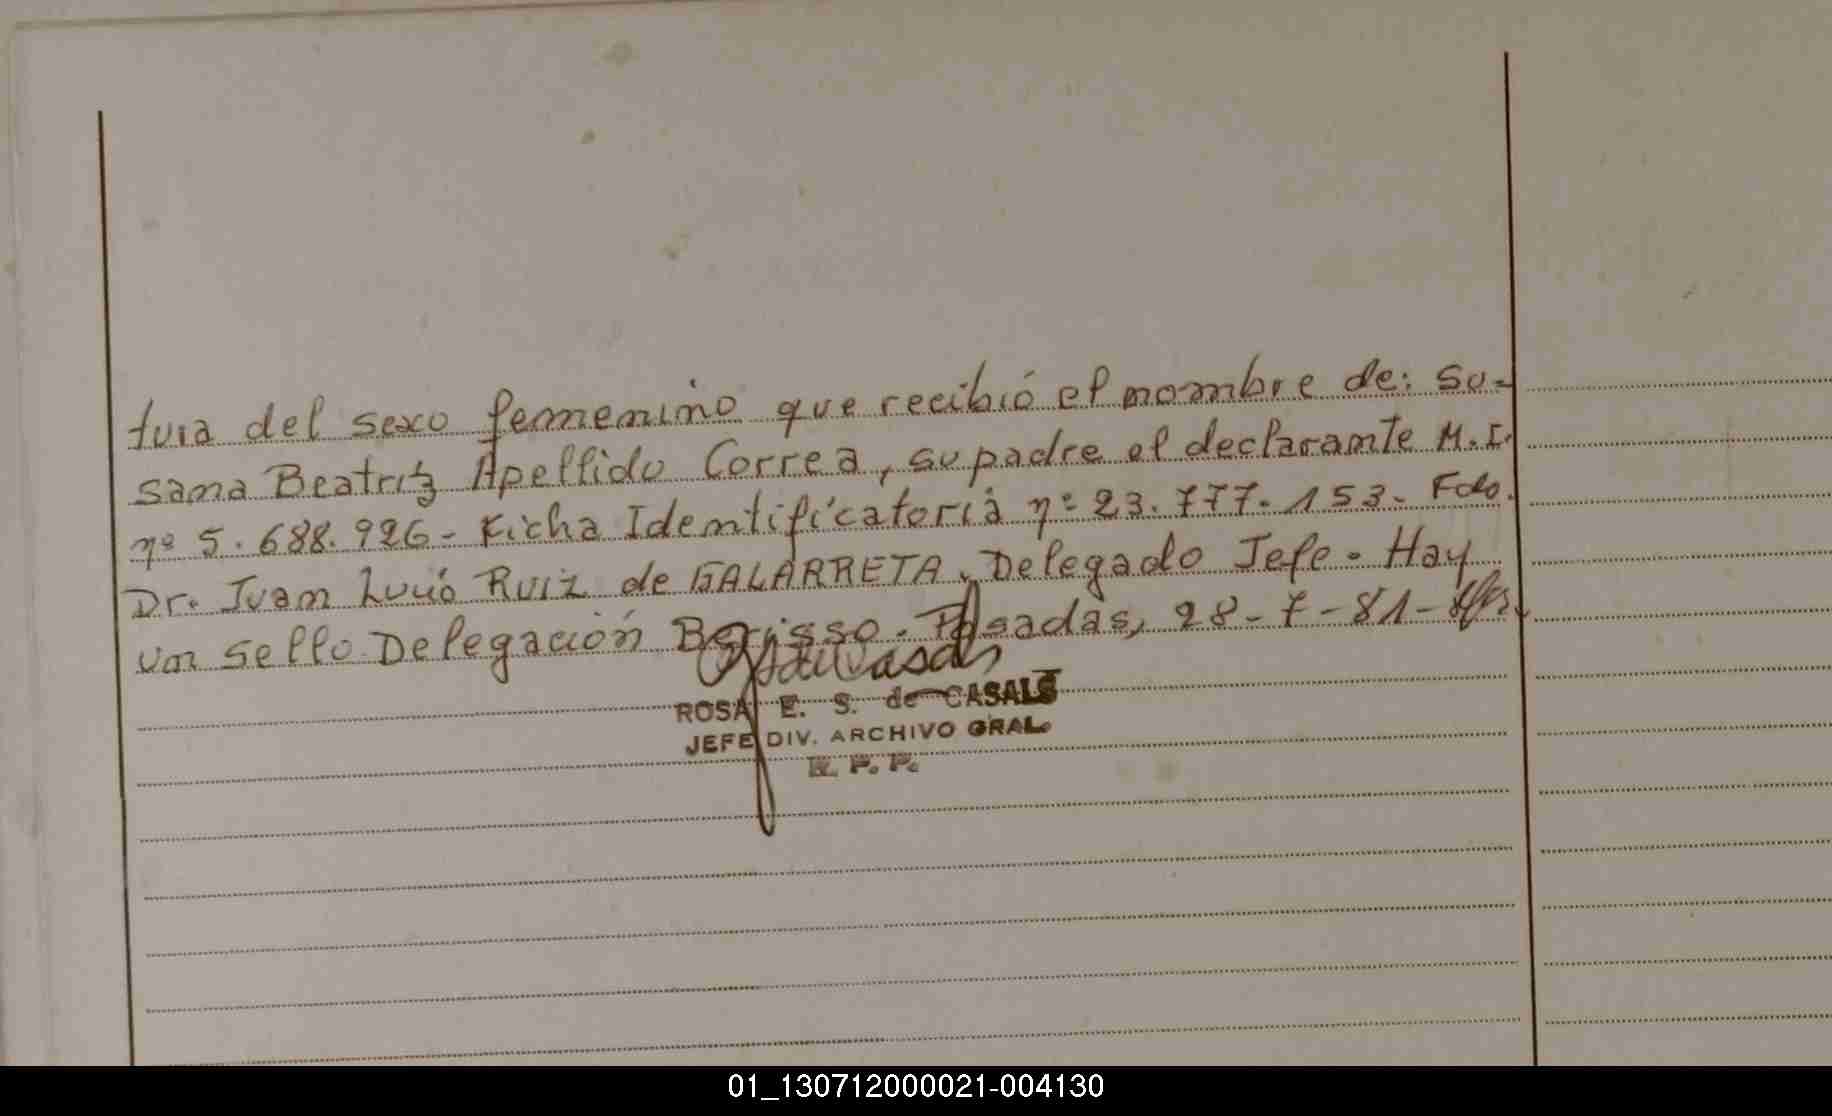 tura del sexo femenino que recibió el nombre de: Su-
sana Beatriz Apellido Correa, su padre el declarante M.I.
nº 5.688.926- Ficha Identificatoria nº 23.777.153- Fdo.
Dr. Juan Lucio Ruiz de GALARRETA, Delegado Jefe. Hay
un sello Delegación Berisso. Posadas, 28-7-81-
ROSA E. S. de CASALS
JEFE DIV. ARCHIVO GRAL.
R. P. P.
01_130712000021-004130